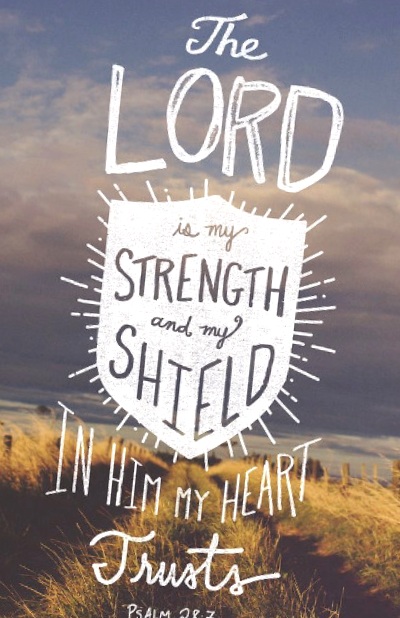 The
LORD
is my
STRENGTH
and my
SHIELD
IN HIM MY HEART
Trusts
PSALM 28:7